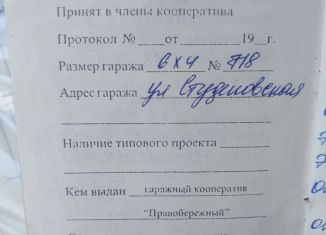 Принят в члены кооператива
Протокол № ____от ______19 __г.
Размер гаража 6х4 № 718
Адрес гаража ул Студеновская
Наличие типового проекта
Кем выдан гаражный кооператив
"Правобережный"